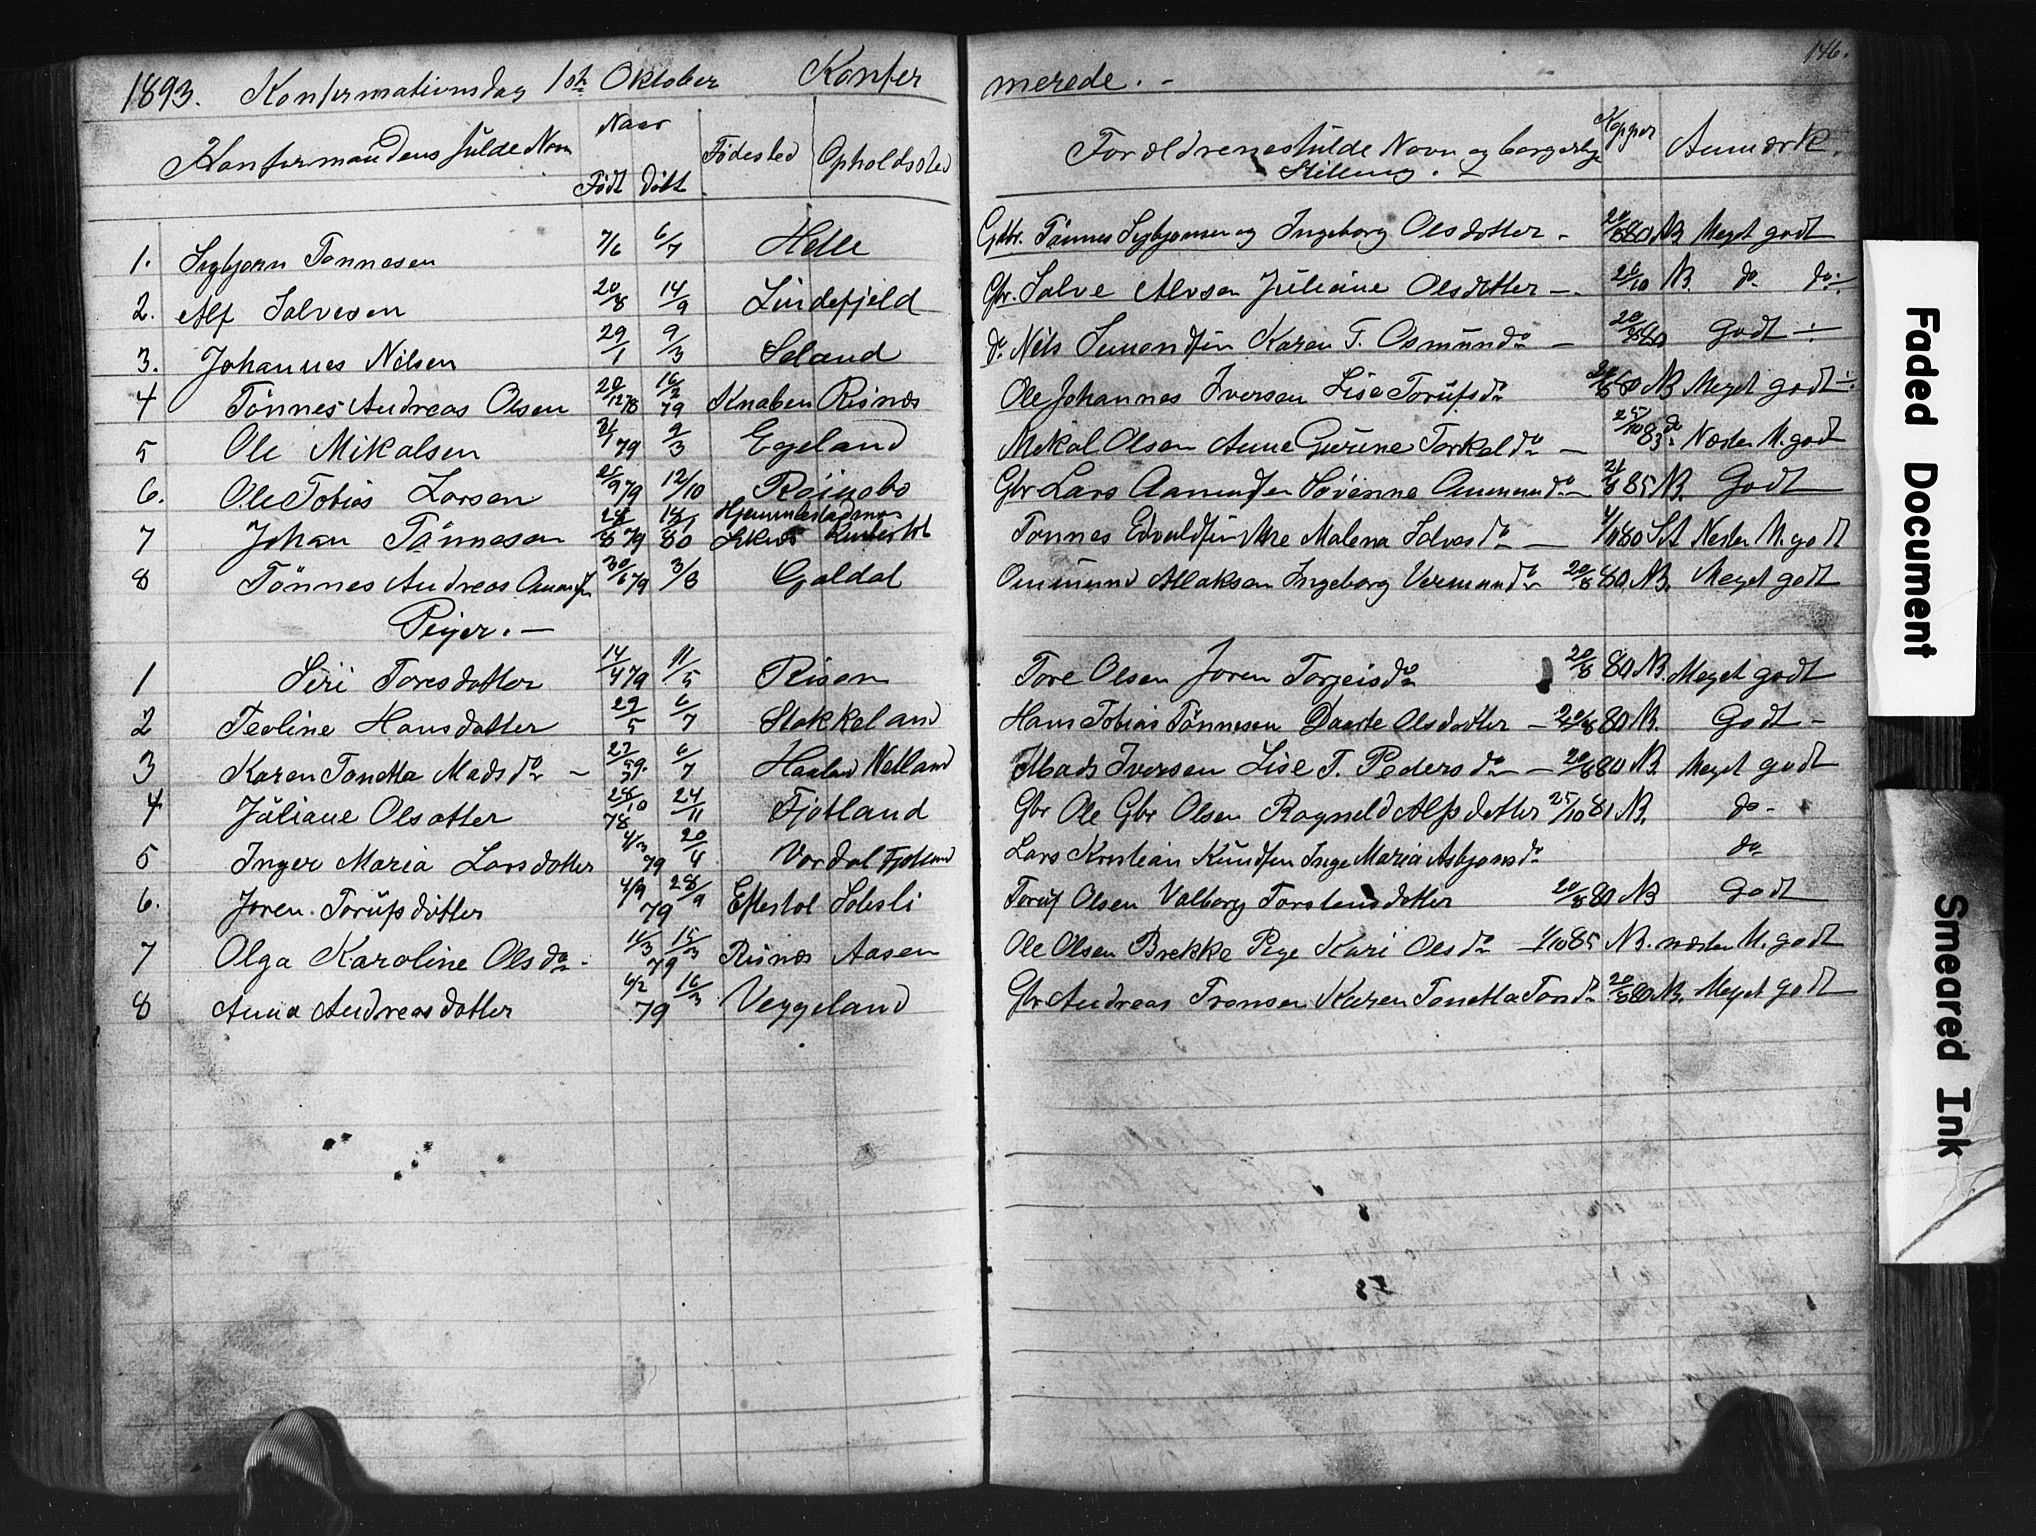 146.
1893. Konfirmationsdag 1ste Oktober Konfir merede. -
Konfirmandens fulde Navn Naar Født Døbt Fødested Opholdssted Forældrenes fulde Navn og borgerlige Stilling. Kopper Anmærk.
1. Sigbjørn Tønnesen 7/6 6/7 Helle Gbr. Tønnes Sigbjørnsen og Ingeborg Olsdotter - 20/8 80 NB Meget godt
2. Alf Salvesen 20/8 14/9 Lindefjeld Gbr. Salve Alvsen Juliane Olsdotter - 26/10 NB. do do -
3. Johannes Nilsen 29/1 9/3 Seland do Nils Simondsen Karen T. Osmundsdo - 20/8 80 Godt -
4 Tönnes Andreas Olsen 20/12 78 16/2 79 Knaben Risnes Ole Johannes Iversen Lise Torufsdo 20/8 80 NB Meget godt -
5 Ole Mikalsen 21/1 79 2/3 Egeland Mikal Olsen Anne Gurine Torkeldo - 25/10 83 do Næsten M. godt
6. Ole Tobias Larsen 25/9 79 12/10 Gbr Lars Aamundsen Sövenne Ommundsdo - 21/8 85 NB. Godt
7 Johan Tönnesen 28/8 79 18/1 80 Tønnes Edvaldsen Malena Salvesdo - 4/10 80 Næsten M. godt
8 Tönnes Andreas 30/6 79 3/8 Galdal Ommund Aslaksen Ingeborg Vermundsdo 20/8 80 NB. Meget godt
Piger. -
1 Siri Toresdotter 14/4 79 11/5 Risen Tore Olsen Joren Torjeisdo 20/8 80 NB. Meget godt
2 Teoline Hansdatter 29/5 6/7 Stokkeland Hans Tobias Tönnesen Daarte Olsdotter - 20/8 80 NB. Godt -
3 Karen Tonetta Madsdo - 27/5 79. 6/7 Haaland Netland Mads Iversen Lise T. Pedersdo - 20/8 80 NB. Meget godt
4 Juliane Olsotter 28/10 78 24/11 Fjotland Gbr Ole Gbr Olsen Ragneld Alfsdotter 25/10 81 NB. do -
5 Inger Maria Larsdotter 4/3 79 20/4 Vordal Fjotland Lars Kristian Knudsen Inge Maria Asbjørnsdo do
6. Joren Torufsdotter 4/9 79 28/9 Eftestol Solesli Toruf Olsen Valborg Torstensdotter 20/8 80 NB Godt
7 Olga Karoline Olsdo - 11/3 79 15/3 Risnes Aasen Ole Olsen Brekke Pige Kari Olsdo - 1/10 85 NB. næsten M. godt
8 Anna Andreasdotter 6/2 79 16/3 Veggeland Gbr Andreas Tronsen Karen Tonetta Tondo 20/8 80 NB. Meget godt
Faded Document
Smeared Ink